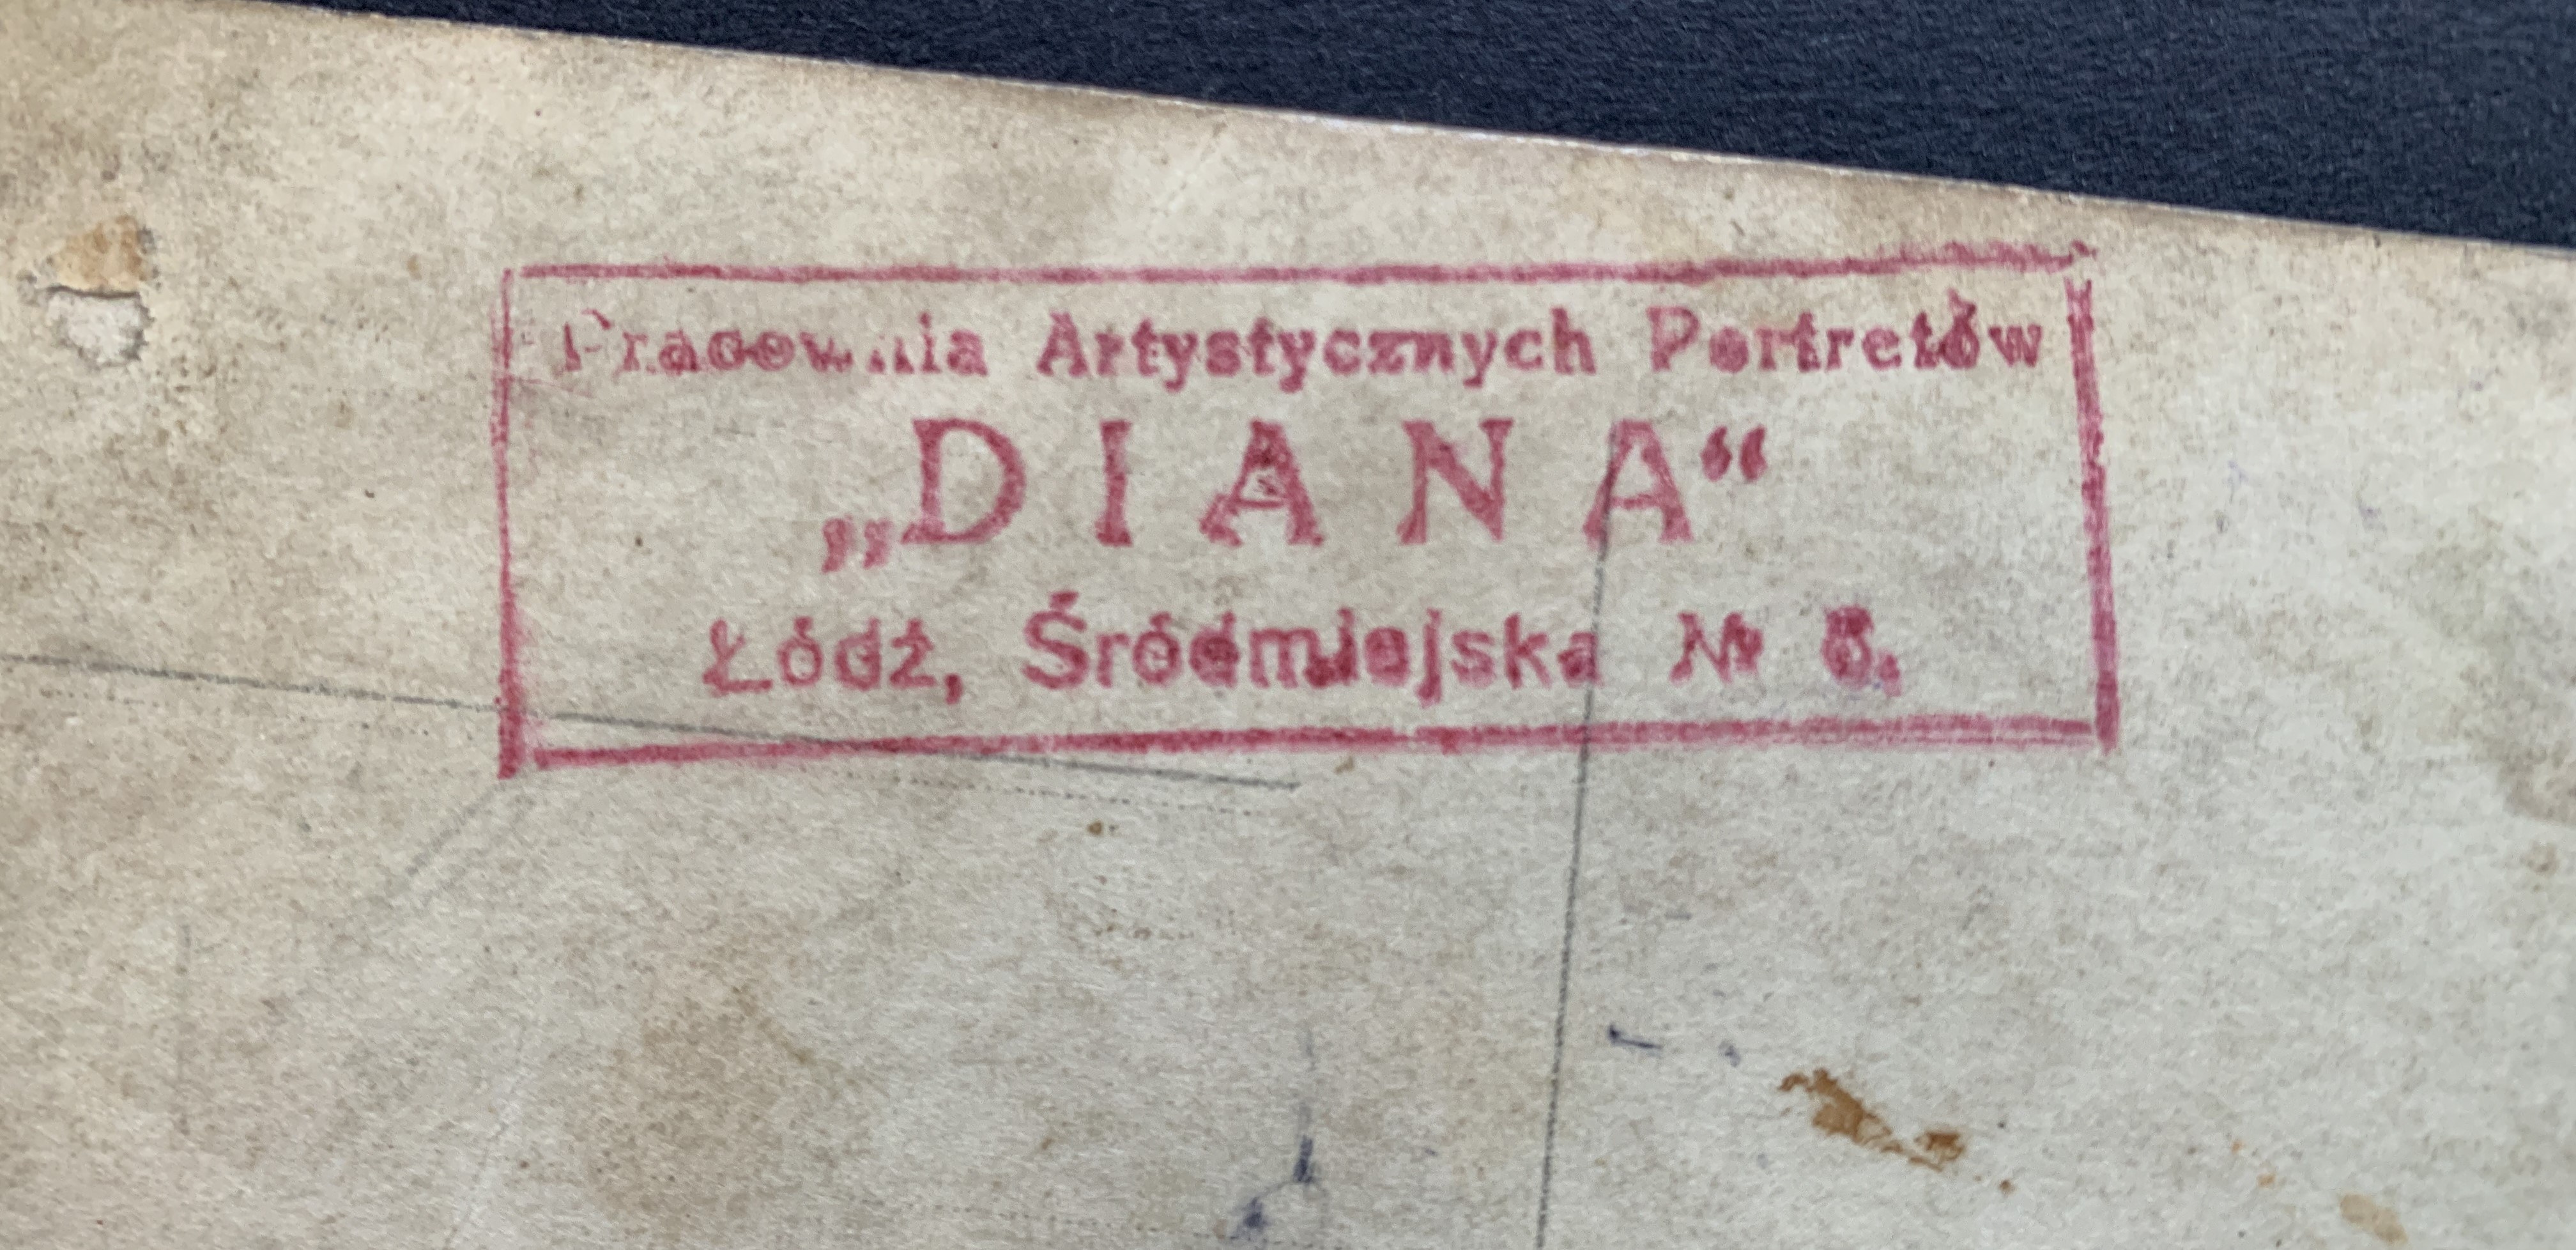 Pracownia Artystycznych Portretów
„DIANA“
Łódź, Śródmiejska №